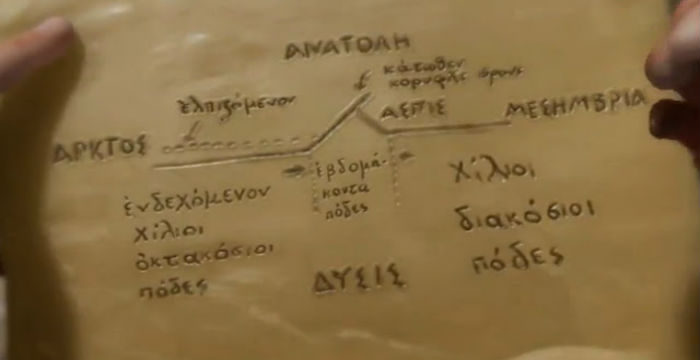 ΑΝΑΤΟΛΗ
κάτωθεν
κορυφῆς ὄρους
ἐλπιζόμενον
ΔΕΠΙΣ
ΜΕΣΗΜΒΡΙΑ
ΑΡΚΤΟΣ
ἑβδομή-
κοντα
πόδες
ἐνδεχόμενον
χίλιοι
ὀκτακόσιοι
πόδες
χίλιοι
διακόσιοι
πόδες
ΔΥΣΙΣ